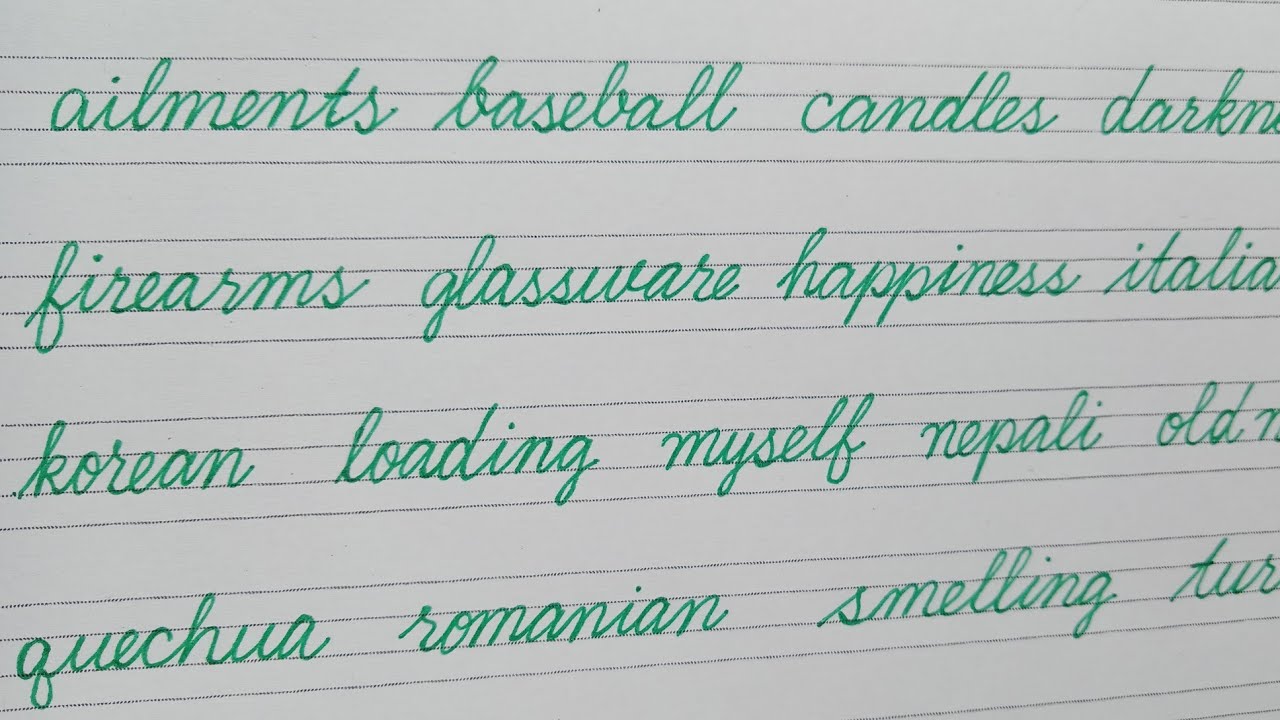 ailments baseball candles darkn
firearms glassware happiness italia
korean loading myself nepali old
quechua romanian smelling tur